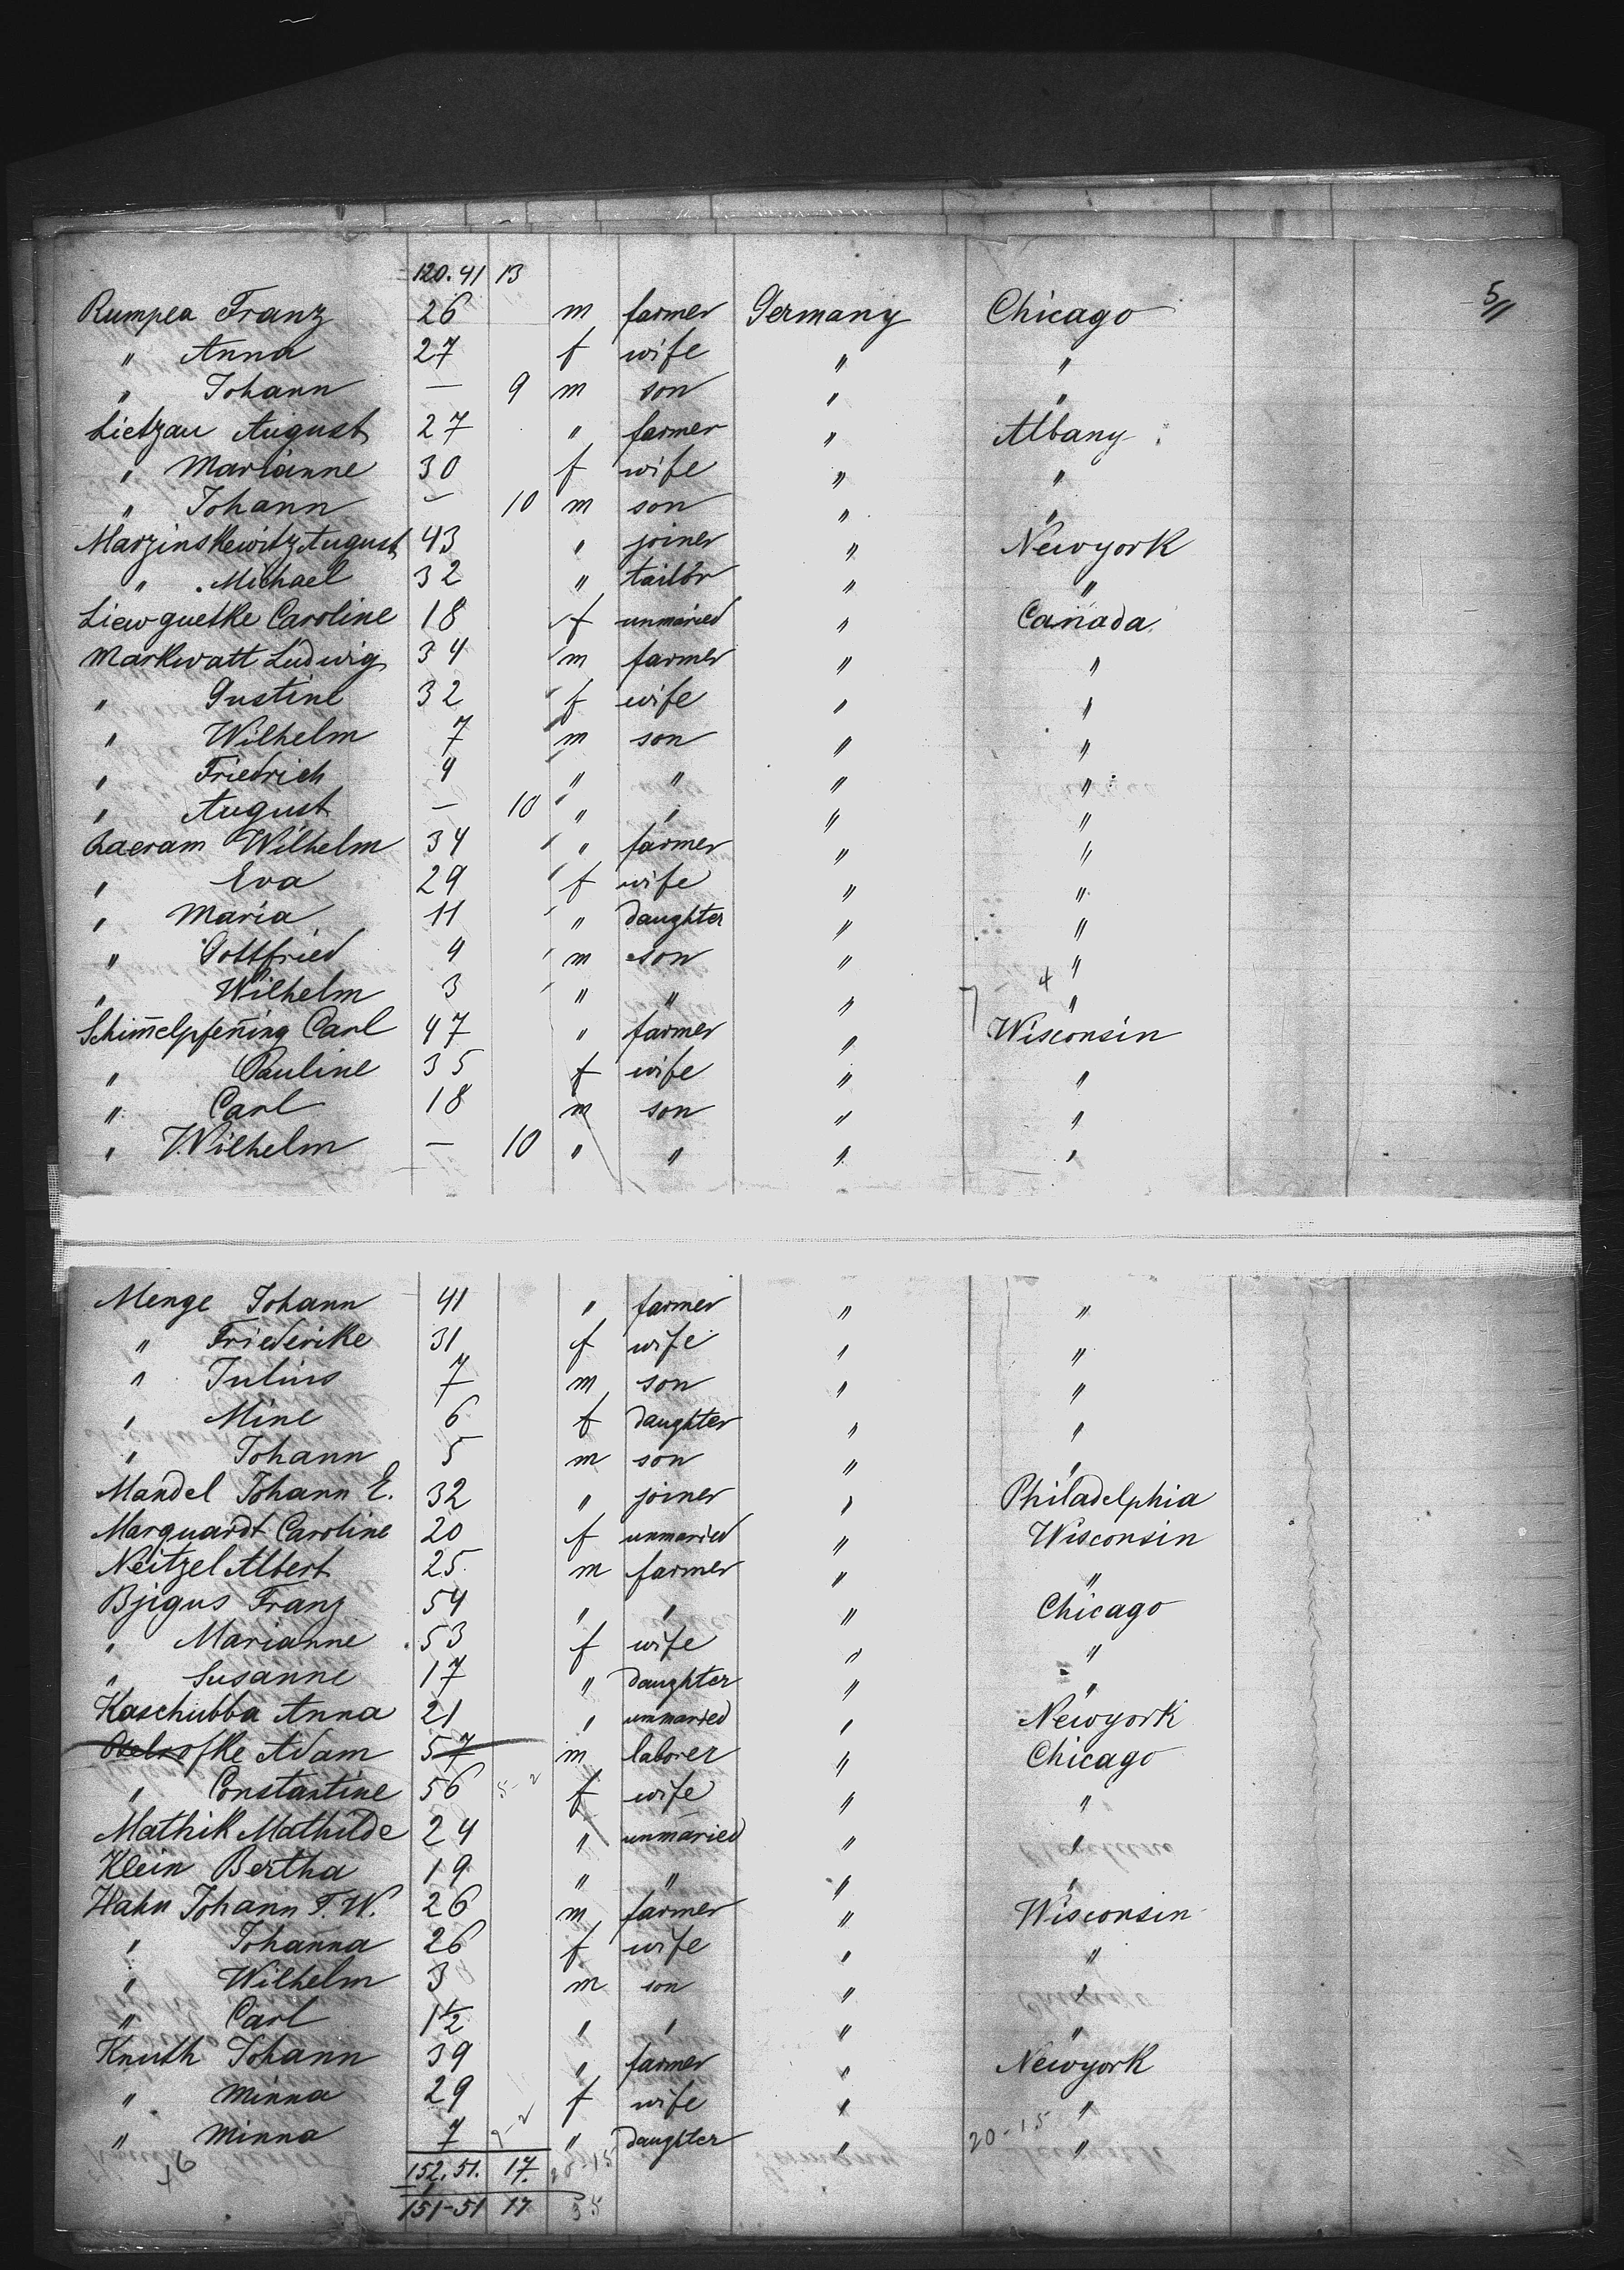 120. 41 13
5/
Rumpea Franz 26 m farmer Germany Chicago
" Anna 27 f wife " "
" Johann — 9 m son " "
Lietzau August 27 " farmer " Albany
" Marianne 30 f wife " "
" Johann — 10 m son " "
Marzinskewitz August 43 " joiner " Newyork
" Michael 32 " tailor " "
Liewguetke Caroline 18 f unmaried " Canada
Markwatt Ludwig 34 m farmer " "
" Gustine 32 f wife " "
" Wilhelm 7 m son " "
" Friedrich 4 " " " "
" August — 10 " " " "
Wilhelm 34 " farmer " "
" Eva 29 f wife " "
" Maria 11 " daughter " "
" Gottfried 4 m son " "
" Wilhelm 3 " " " "
Schim̄elpfen̄ing Carl 47 " farmer " Wisconsin
" Pauline 35 f wife " "
" Carl 18 m son " "
" Wilhelm — 10 " " " "
Menge Johann 41 " farmer " "
" Friederike 31 f wife " "
" Julius 7 m son " "
" Mine 6 f daughter " "
" Johann 5 m son " "
Mandel Johann E. 32 " joiner " Philadelphia
Marquardt Caroline 20 f unmaried " Wisconsin
Neitzel Albert 25. m farmer " "
Bjigus Franz 54 " " " Chicago
" Marianne 53 f wife " "
" Susanne 17 " daughter " "
Kaschubba Anna 21 " unmaried " Newyork
Adam 57 m laborer " Chicago
" Constantine 56 f wife " "
Mathik Mathilde 24 " unmaried " "
Klein Bertha 19 " " " "
Hahn Johann F. W. 26 m farmer " Wisconsin
" Johanna 26 f wife " "
" Wilhelm 3 m son " "
" Carl 1½ " " " "
Knuth Johann 39 " farmer " Newyork
" Minna 29 f wife " "
" Minna 7 " daughter " "
20-15
152. 51. 17. 20-15
151-51 17 35